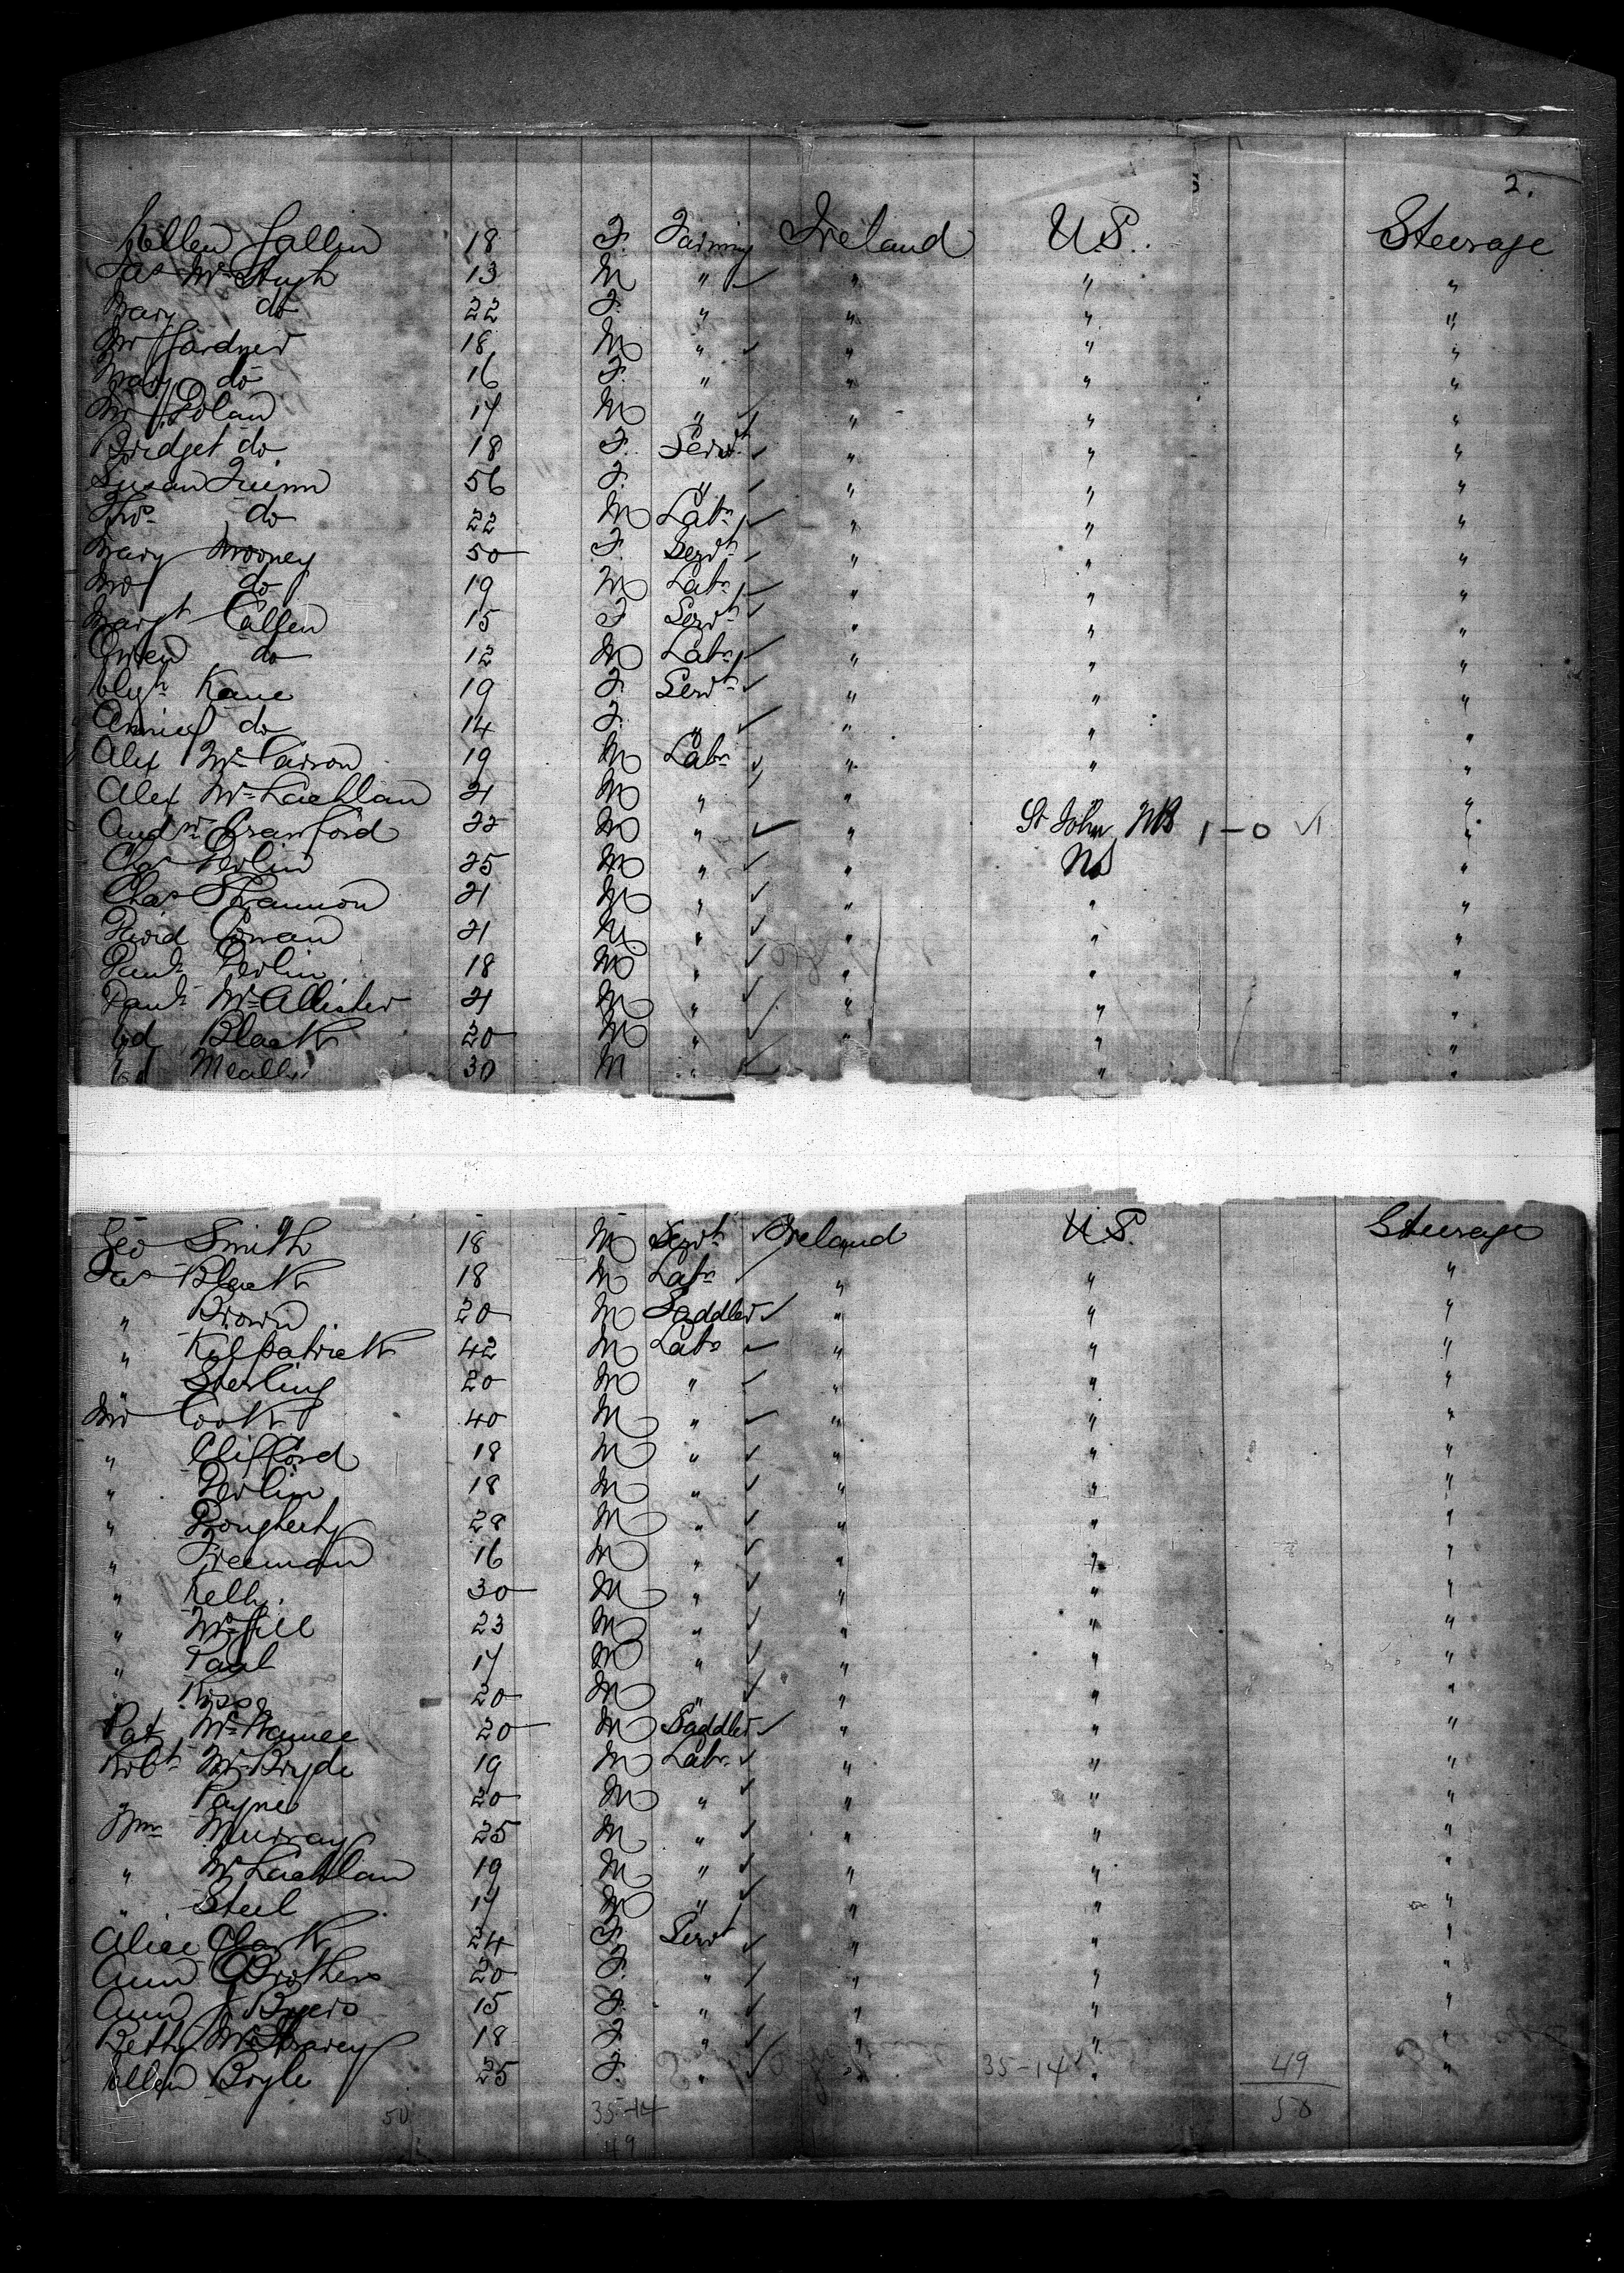 2.
Ellen Gallen 18 F. Farming Ireland U.S. Steerage
Jas McHugh 13 M " " " "
Mary do 22 F. " " " "
Jno Gardner 18 M " " " "
Mary do 16 F. " " " "
Jno Dolan 17 M " " " "
Bridget do 18 F. Servt " " "
Susan Quinn 56 F. " " " "
Thos do 22 M Labr " " "
Mary Mooney 50 F. Servt " " "
Jno do 19 M Labr " " "
Margt Calfen 15 F Servt " " "
Owen do 12 M Labr " " "
Elizh Kane 19 F. Servt " " "
Annie do 14 F. " " " "
Alex McCarron 19 M Labr " " "
Alex McLachlan 21 M " " " "
Andw Crawford 22 M " " St John NB 1-0 "
Chas Devlin 25 M " " US "
Chas Shannon 21 M " " " "
David Cowan 21 M " " " "
Danl Devlin 18 M " " " "
Danl McAllister 21 M " " " "
Ed Black 20 M " " " "
Ed 30 M " " " "
Geo Smith 18 M Servt Ireland U.S. Steerage
Jas Black 18 M Labr " " "
" Brown 20 M Saddler " " "
" Kilpatrick 42 M Labr " " "
" Sterling 20 M " " " "
Jno Cook 40 M " " " "
" Clifford 18 M " " " "
" Devlin 18 M " " " "
" Dougherty 28 M " " " "
" Freeman 16 M " " " "
" Kelly 30 M " " " "
" McGill 23 M " " " "
" Paul 17 M " " " "
" Ross 20 M " " " "
Pat McNamee 20 M Saddler " " "
Robt McBryde 19 M Labr " " "
" Payne 20 M " " " "
Wm Murray 25 M " " " "
" McLachlan 19 M " " " "
" Steel 17 M " " " "
Alice Clark 24 F. Servt " " "
Ann Brothers 20 F. " " " "
Ann J Byers 15 F. " " " "
Betty 18 F. " " " "
Ellen Boyle 25 F. " " " "
35-14 49
50 35-14 58
49